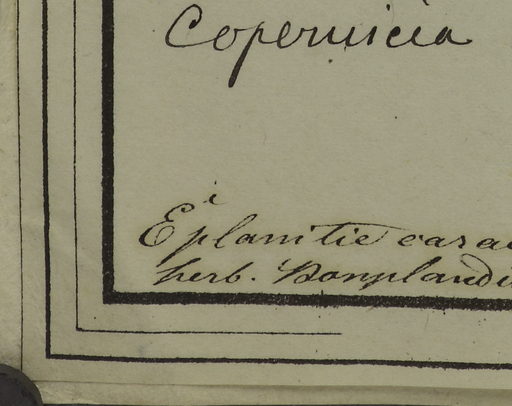 Copernicia
E planitie carac
herb. Bonplandi